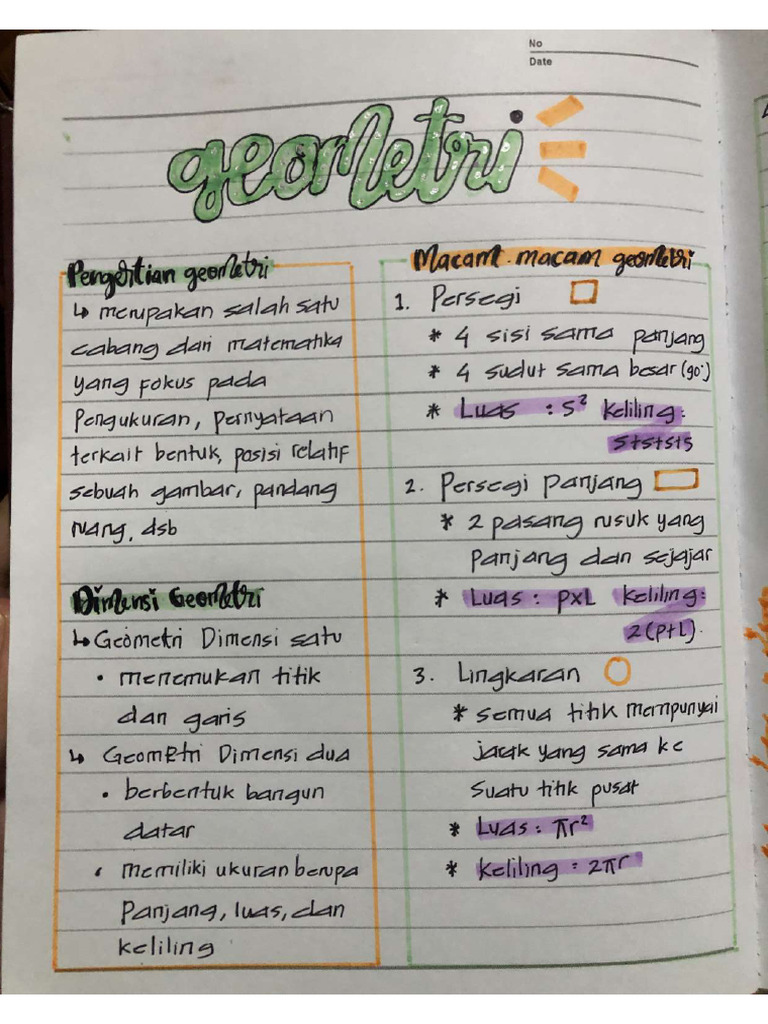 No
Date
geometri
Pengertian geometri
↳ merupakan salah satu
cabang dari matematika
yang fokus pada
Pengukuran, pernyataan
terkait bentuk, posisi relatif
sebuah gambar, pandang
ruang, dsb
Dimensi Geometri
↳ Geometri Dimensi satu
• menemukan titik
dan garis
↳ Geometri Dimensi dua
• berbentuk bangun
datar
• memiliki ukuran berupa
Panjang, luas, dan
keliling
Macam-macam geometri
1. Persegi
* 4 sisi sama panjang
* 4 sudut sama besar (90°)
* Luas : S² keliling:
s+s+s+s
2. Persegi Panjang
* 2 pasang rusuk yang
Panjang dan sejajar
* Luas : pxL keliling:
2(p+L).
3. Lingkaran
* semua titik mempunyai
jarak yang sama ke
suatu titik pusat
* Luas : πr²
* keliling : 2πr